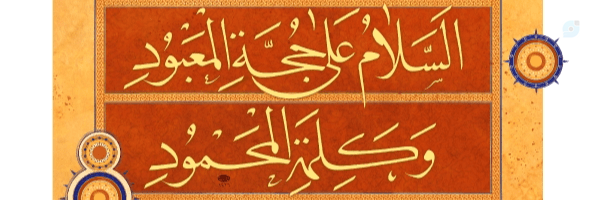 اَلسَّلَامُ عَلَى حُجَّةِ الْمَعْبُودِ
وَكَلِمَةِ الْمَحْمُودِ